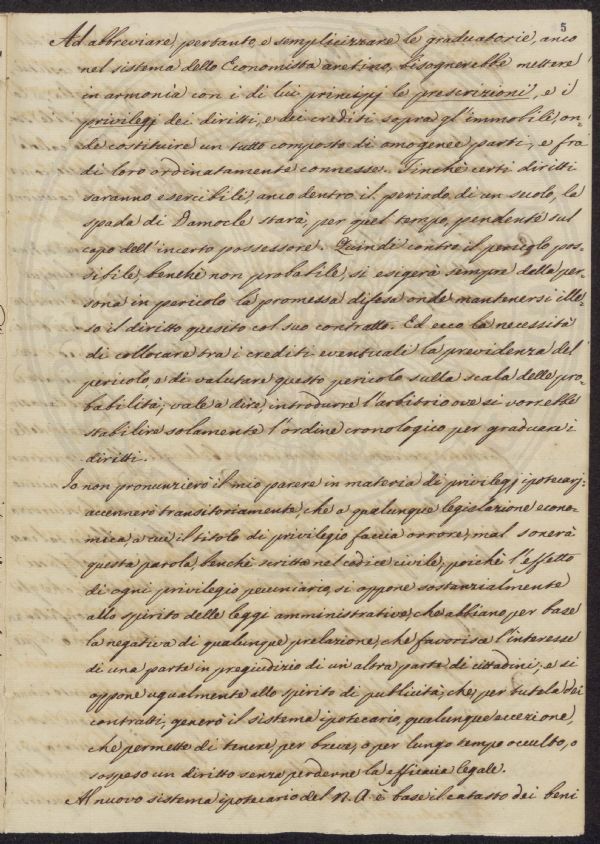 5
Ad abbreviare, pertanto, e semplicizzare le graduatorie, anco
nel sistema dello Economista aretino, bisognerebbe mettere
in armonìa con i di lui principj le prescrizioni, e i
privilegj dei diritti, e dei crediti sopra gl'immobili, on-
de costituire un tutto composto di omogenee parti, e frà
di loro ordinatamente connesse. Finchè certi diritti
saranno esercibili, anco dentro il periodo di un secolo, la
spada di Damocle starà, per quel tempo, pendente sul
capo dell'incerto possessore. Quindi contro il pericolo pos-
sibile, benchè non probabile, si esigerà sempre dalla per-
sona in pericolo la promessa difesa onde mantenersi ille-
so il diritto quesito col suo contratto. Ed ecco la necessità
di collocare tra i crediti eventuali la previdenza del
pericolo, e di valutare questo pericolo sulla scala delle pro-
babilità; vale a dire, introdurre l'arbitrio ove si vorrebbe
stabilire solamente l'ordine cronologico per graduare i
diritti.
Io non pronunzierò il mio parere in materia di privilegj ipotecarj;
accennerò transitoriamente, che a qualunque legislazione econo-
mica, a cui il titolo di privilegio faccia orrore, mal sonerà
questa parola, benchè scritta nel codice civile; poichè l'effetto
di ogni privilegio pecuniario, si oppone sostanzialmente
allo spirito delle leggi amministrative, che abbiano per base
la negativa di qualunque prelazione, che favorisca l'interesse
di una parte in pregiudizio di un'altra parte di cittadini; e si
oppone ugualmente allo spirito di publicità, che, per tutela dei
contratti, generò il sistema ipotecario, qualunque eccezione,
che permette di tenere, per breve, o per lungo tempo occulto, o
sospeso un diritto senza perderne la efficacia legale.
Al nuovo sistema ipotecario del N. A. è base il catasto dei beni